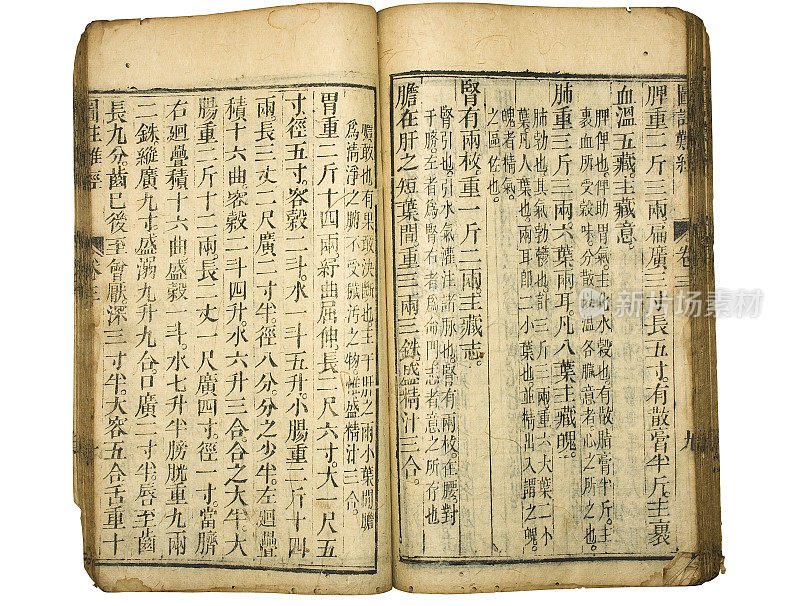 圖註難經 卷三 九
脾重二斤三兩。扁廣三寸。長五寸。有散膏半斤。主裹
血溫五藏。主藏意。
脾俾也。俾助胃氣。主化水穀也。有散膏半斤。主
裹血所受穀味分散溫各臟意者心之所之也。
肺重三斤三兩。六葉兩耳。凡八葉。主藏魄。
肺勃也。其氣勃鬱也。計三斤三兩重六大葉二小
葉。凡人葉也。兩耳卽二小葉也。並精出入謂之魄。
魄者精氣。
之匡佐也。
腎有兩枚。重一斤二兩。主藏志。
腎引也。引水氣灌注諸脉也。腎有兩枚。在腰對
于臍。左者爲腎。右者爲命門。志者意之所存也
膽在肝之短葉間。重三兩三銖。盛精汁三合。
膽敢也。有果敢決斷也。主于肝之兩小葉間。膽
爲清淨之腑。不受穢汚之物。惟盛精汁三合。
胃重二斤十四兩。紆曲屈伸。長二尺六寸。大一尺五
寸。徑五寸。容穀二斗。水一斗五升。小腸重二斤十四
兩。長三丈二尺。廣二寸半。徑八分分之少半。左廻疊
積十六曲。容穀二斗四升。水六升三合合之大半。大
腸重二斤十二兩。長二丈一尺。廣四寸。徑一寸。當臍
右廻疊積十六曲。盛穀一斗。水七升半。膀胱重九兩
二銖。縱廣九寸。盛溺九升九合。口廣二寸半。唇至齒
長九分。齒已後至會厭。深三寸半。大容五合。舌重十
圖註難經 卷三
新片场 | iStock